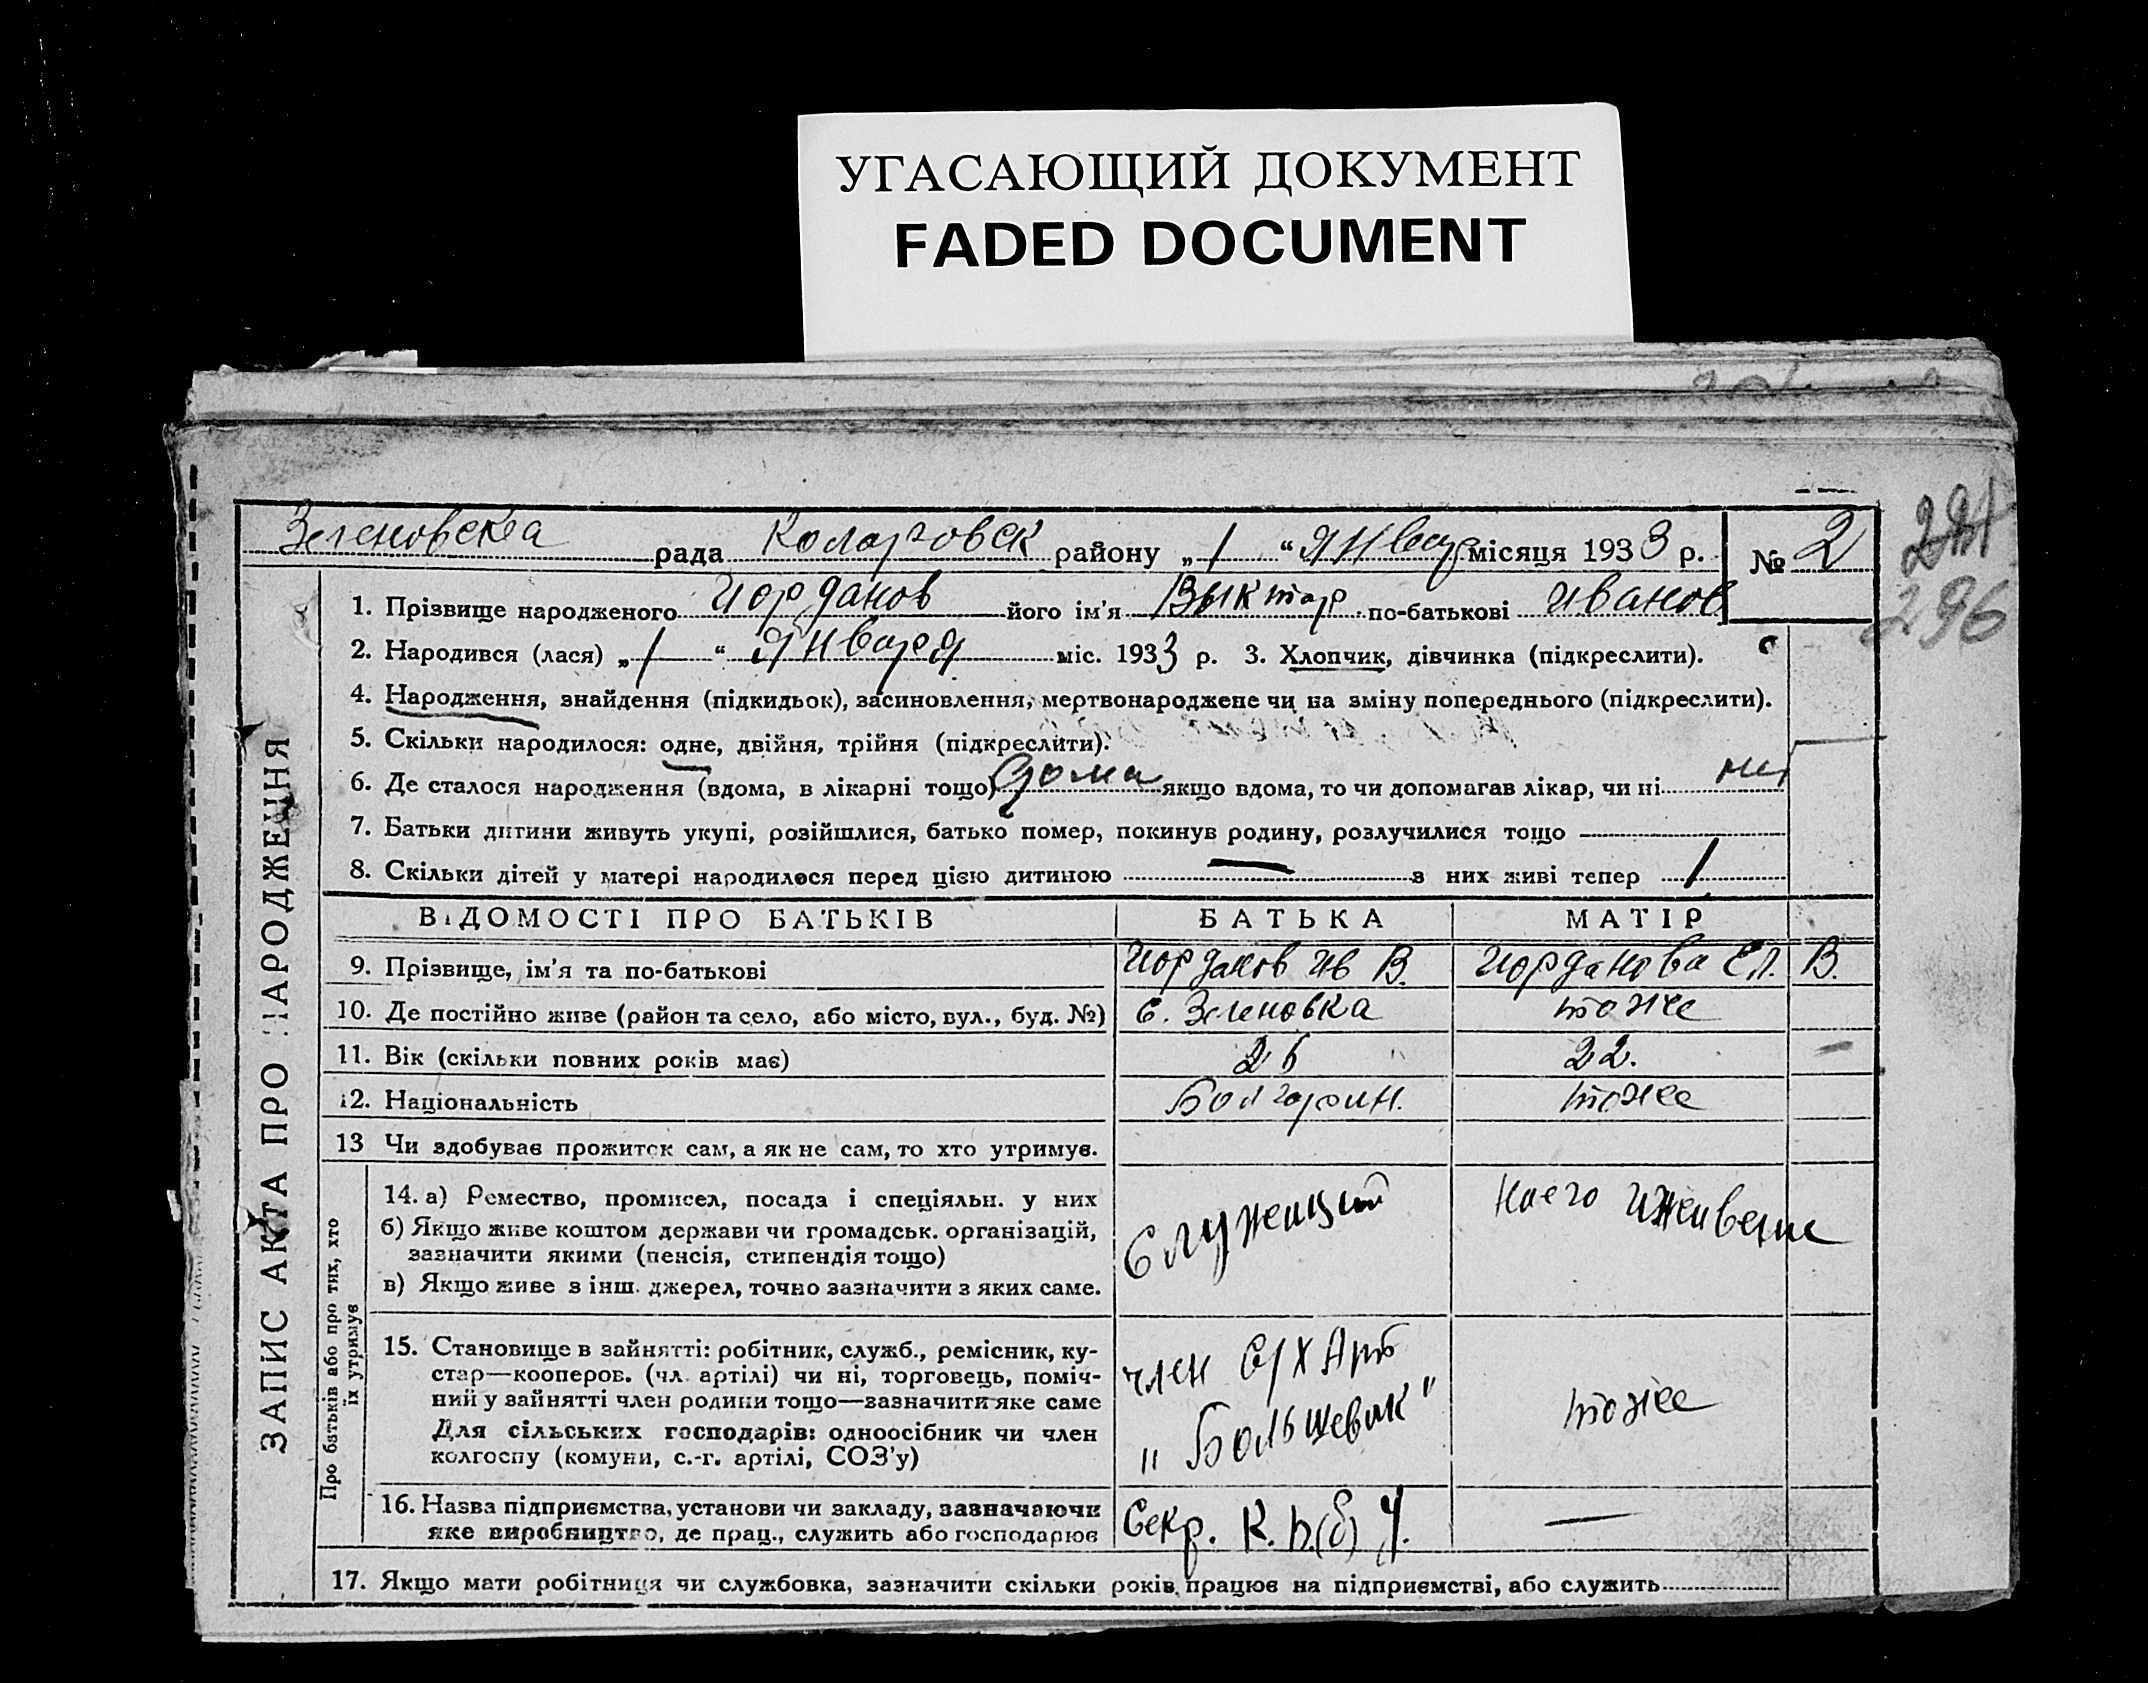 УГАСАЮЩИЙ ДОКУМЕНТ
FADED DOCUMENT
Зеленовска рада Коларовск району „1“ Января місяця 1933 р. № 2
221
296
ЗАПИС АКТА ПРО НАРОДЖЕННЯ
1. Прізвище народженого Иорданов його ім'я Виктор по-батькові Иванов
2. Народився (лася) „1“ Января міс. 1933 р. 3. Хлопчик, дівчинка (підкреслити).
4. Народження, знайдення (підкидьок), засиновлення, мертвонароджене чи на зміну попереднього (підкреслити).
5. Скільки народилося: одне, двійня, трійня (підкреслити).
6. Де сталося народження (вдома, в лікарні тощо) дома якщо вдома, то чи допомагав лікар, чи ні ни
7. Батьки дитини живуть укупі, розійшлися, батько помер, покинув родину, розлучилися тощо
8. Скільки дітей у матері народилося перед цією дитиною — з них живі тепер 1
ВІДОМОСТІ ПРО БАТЬКІВ БАТЬКА МАТІР
9. Прізвище, ім'я та по-батькові Иорданов Ив В. Иорданова Ел. В.
10. Де постійно живе (район та село, або місто, вул., буд. №) с. Зеленовка тоже
11. Вік (скільки повних років має) 26 22.
12. Національність Болгарин. тоже
13 Чи здобуває прожиток сам, а як не сам, то хто утримує.
Про батьків або про тих, хто їх утримує
14. а) Ремество, промисел, посада і спеціяльн. у них
б) Якщо живе коштом держави чи громадськ. організацій,
зазначити якими (пенсія, стипендія тощо)
в) Якщо живе з інш. джерел, точно зазначити з яких саме.
Служащий
15. Становище в зайнятті: робітник, служб., ремісник, ку-
стар—кооперов. (чл. артілі) чи ні, торговець, поміч-
ний у зайнятті член родини тощо—зазначити яке саме
Для сільських господарів: одноосібник чи член
колгоспу (комуни, с.-г. артілі, СОЗ'у)
член С/Х Арт
„Большевик"
тоже
16. Назва підприємства, установи чи закладу, зазначаючи
яке виробництво, де прац., служить або господарює
Секр. К.П.(б)У. —
17. Якщо мати робітниця чи службовка, зазначити скільки років працює на підприємстві, або служить